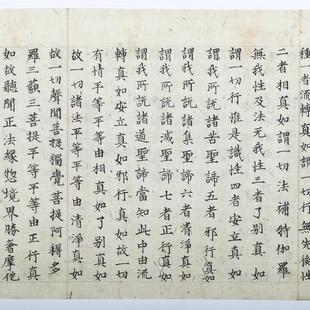 種一者流轉真如謂一切行無先後性
二者相真如謂一切法補特伽羅
無我性及法无我性三者了別真如
謂一切行惟是識性四者安立真如
謂我所説諸苦聖諦五者邪行真如
謂我所説諸集聖諦六者清淨真如
謂我所説諸滅聖諦七者正行真如
謂我所説諸道聖諦當知此中由流
轉真如安立真如邪行真如故一切
有情平等平等由相真如了別真如
故一切諸法平等平等由清淨真如
故一切聲聞菩提獨覺菩提阿耨多
羅三藐三菩提平等平等由正行真
如故聽聞正法緣惣境界勝奢摩他